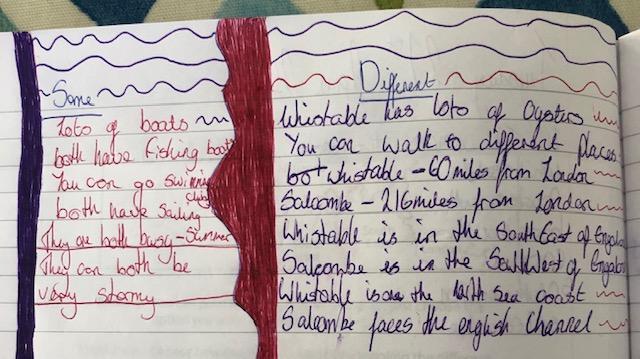 Same
Lots of boats
both have fishing boat
You can go swimming
both have sailing clubs
They are both busy - Summer
They can both be
very stormy
Different
Whistable has lots of Oysters
You can walk to different places
Whistable - 60 miles from London
Salcombe - 216 miles from London
Whistable is in the South East of England
Salcombe is in the South West of England
Whistable is on the North Sea coast
Salcombe faces the english Channel